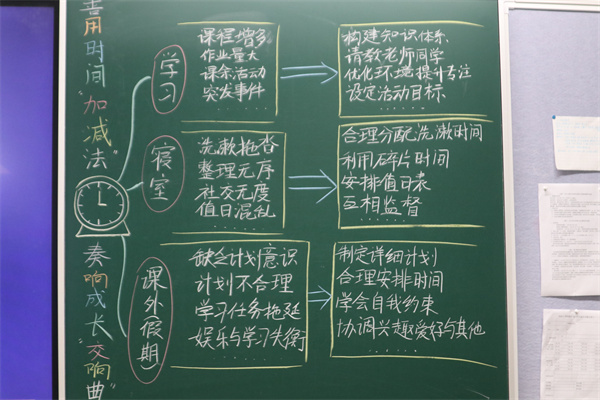 善用时间
"加减法"
奏响成长
"交响曲"
学习
课程增多
作业量大
课余活动
突发事件
......
构建知识体系
请教老师同学
优化环境提升专注
设定活动目标
......
寝室
洗漱拖沓
整理无序
社交无度
值日混乱
......
合理分配洗漱时间
利用碎片时间
安排值日表
互相监督
......
课外(假期)
缺乏计划意识
计划不合理
学习任务拖延
娱乐与学习失衡
制定详细计划
合理安排时间
学会自我约束
协调兴趣爱好与其他